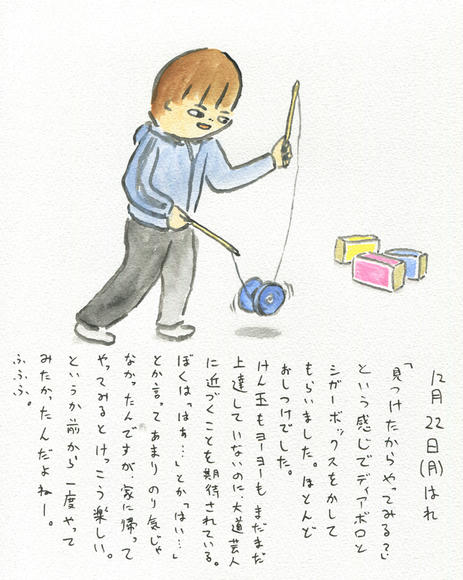 12月22日(月)はれ
「見つけたからやってみる？」
という感じでディアボロと
シガーボックスをかして
もらいました。ほとんど
おしつけでした。
けん玉もヨーヨーもまだまだ
上達していないのに、大道芸人
に近づくことを期待されている。
ぼくは「はぁ…」とか「はい…」
とか言ってあまりのり気じゃ
なかったんですが、家に帰って
やってみるとけっこう楽しい。
というか前から一度やって
みたかったんだよねー。
ふふふ。